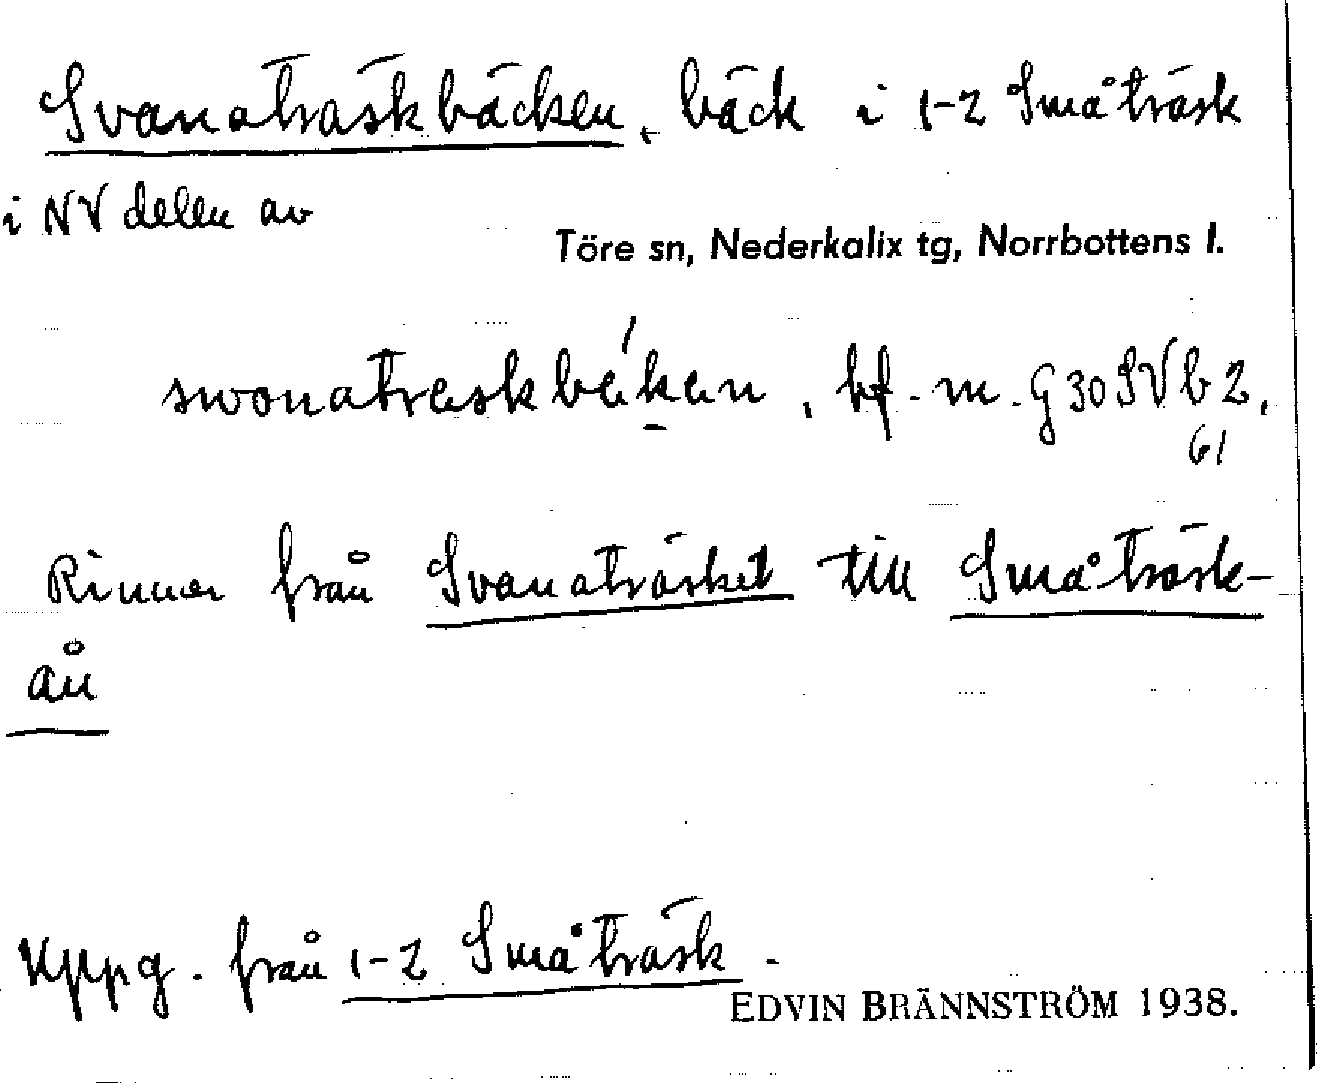 Svanaträskbäcken, bäck i 1-2 Småträsk
i NV delen av
Töre sn, Nederkalix tg, Norrbottens l.
swonatraskbékan, bf. m. G 30 SV b 2,
61
Rinner från Svanaträsket till Småträsk-
ån
Uppg. från 1-2 Småträsk.
EDVIN BRÄNNSTRÖM 1938.